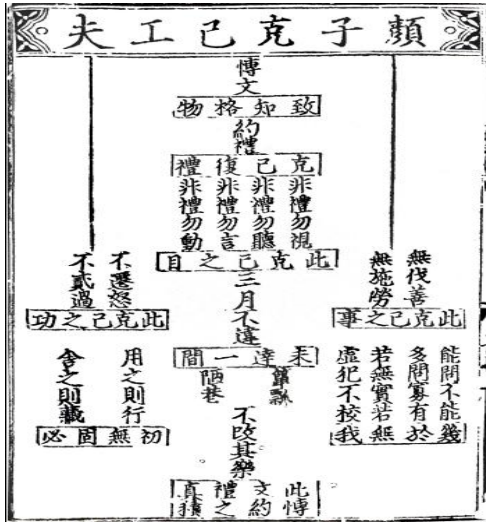 顏子克己工夫
愽文
致知格物
約禮
克己復禮
非禮勿視
非禮勿聽
非禮勿言
非禮勿動
此克己之目
三月不違
未達一間
簞瓢
陋巷
不改其樂
此愽
文約
禮之
真積
無伐善
無施勞
此克己之事
能問不能
多問寡有
若無實若
虛犯不挍
幾於無我
不遷怒
不貳過
此克己之功
用之則行
舍之則藏
初無固必